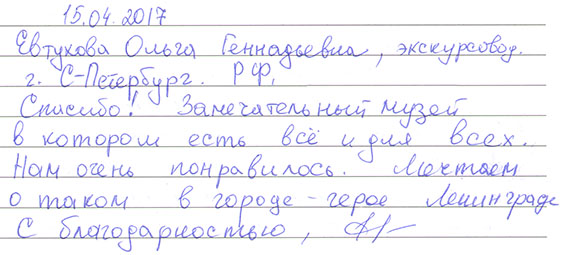 15.04.2017
Евтухова Ольга Геннадьевна, экскурсовод.
г. С-Петербург. РФ.
Спасибо! Замечательный музей
в котором есть всё и для всех.
Нам очень понравилось. Мечтаем
о таком в городе-герое Ленинграде
С благодарностью,